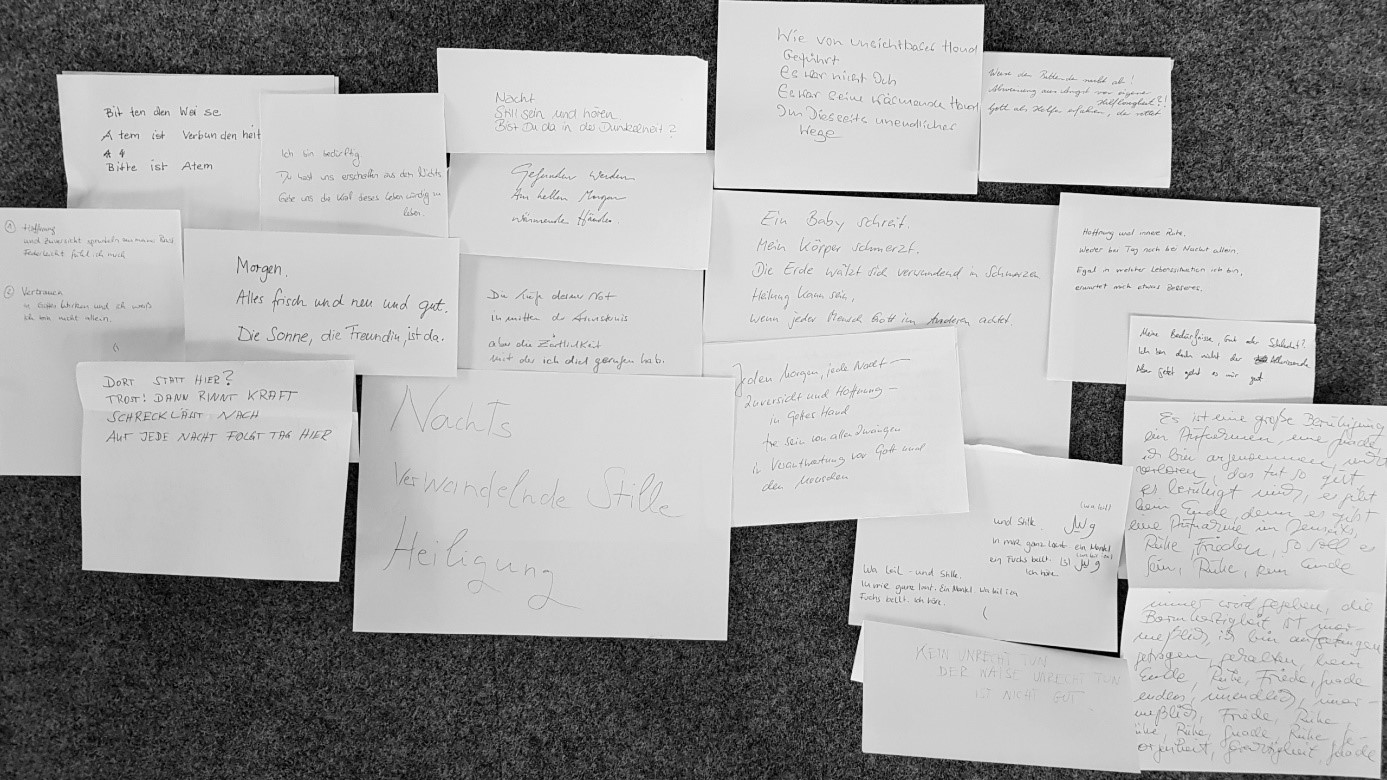 Bit ten den Wei se
Atem ist Verbun den heit
Bitte ist Atem
Ich bin bedürftig
Du hast uns erschaffen aus dem Nichts
Gebe uns die Kraft dieses Leben würdig zu
leben.
Nacht
Still sein und hören
Bist Du da in der Dunkelheit?
Gefunden werden
Am hellen Morgen
wärmende Hände.
Die Tiefe deiner Not
inmitten der Finsternis
aber die Zärtlichkeit
mit der ich dich gerufen hab.
Wie von unsichtbarer Hand
Geführt
Es war nicht Ich
Es war seine wärmende Hand
Im Diesseits unendlicher
Wege
Weise den Bittenden nicht ab!
Abweisung aus Angst vor eigener
Hilflosigkeit?!
Gott als Helfer erfahren, der rettet
① Hoffnung
und Zuversicht
Federleicht fühl ich mich
② Vertrauen
in Gottes und ich weiß
ich bin nicht allein.
Morgen.
Alles frisch und neu und gut.
Die Sonne, die Freundin, ist da.
DORT STATT HIER?
TROST: DANN RINNT KRAFT
SCHRECK LÄSST NACH
AUF JEDE NACHT FOLGT TAG HIER
Nachts
Verwandelnde Stille
Heiligung
Ein Baby schreit.
Mein Körper schmerzt.
Die Erde wälzt sich verwundend in Schmerzen
Heilung kann sein,
wenn jeder Mensch Gott im Anderen achtet.
Jeden Morgen, jede Nacht –
Zuversicht und Hoffnung –
in Gottes Hand
frei sein von allen Zwängen
in Verantwortung vor Gott und
den Menschen
Hoffnung und innere Ruhe,
Weder bei Tag noch bei Nacht allein.
Egal in welcher Lebenssituation ich bin,
erwartet mich etwas Besseres.
Meine Bedürfnisse, Gut oder Schlecht?
Ich bin dahin nicht der
Aber jetzt geht es mir gut
Es ist eine große Beruhigung
ein Aufatmen, eine Gnade
ich bin angenommen, nicht
verloren, das tut so gut
es beruhigt mich, es gibt
kein Ende, denn es gibt
eine Aufnahme im Jenseits,
Ruhe, Frieden, so soll es
sein, Ruhe, kein Ende
immer wird gegeben, die
Barmherzigkeit ist uner-
meßlich, ich bin aufgefangen
getragen, gehalten, kein
Ende, Ruhe, Friede, Gnade
endlos, unendlich, uner-
meßlich, Friede, Ruhe,
Ruhe, Gnade, Ruhe
und Stille.
in mir ganz laut ein Mantel
ein Fuchs bellt. Ist
Ich höre
Wa leil - und Stille.
In mir ganz laut. Ein Mantel. Wa leil ien
Fuchs bellt. Ich höre.
KEIN UNRECHT TUN
DER WAISE UNRECHT TUN
IST NICHT GUT